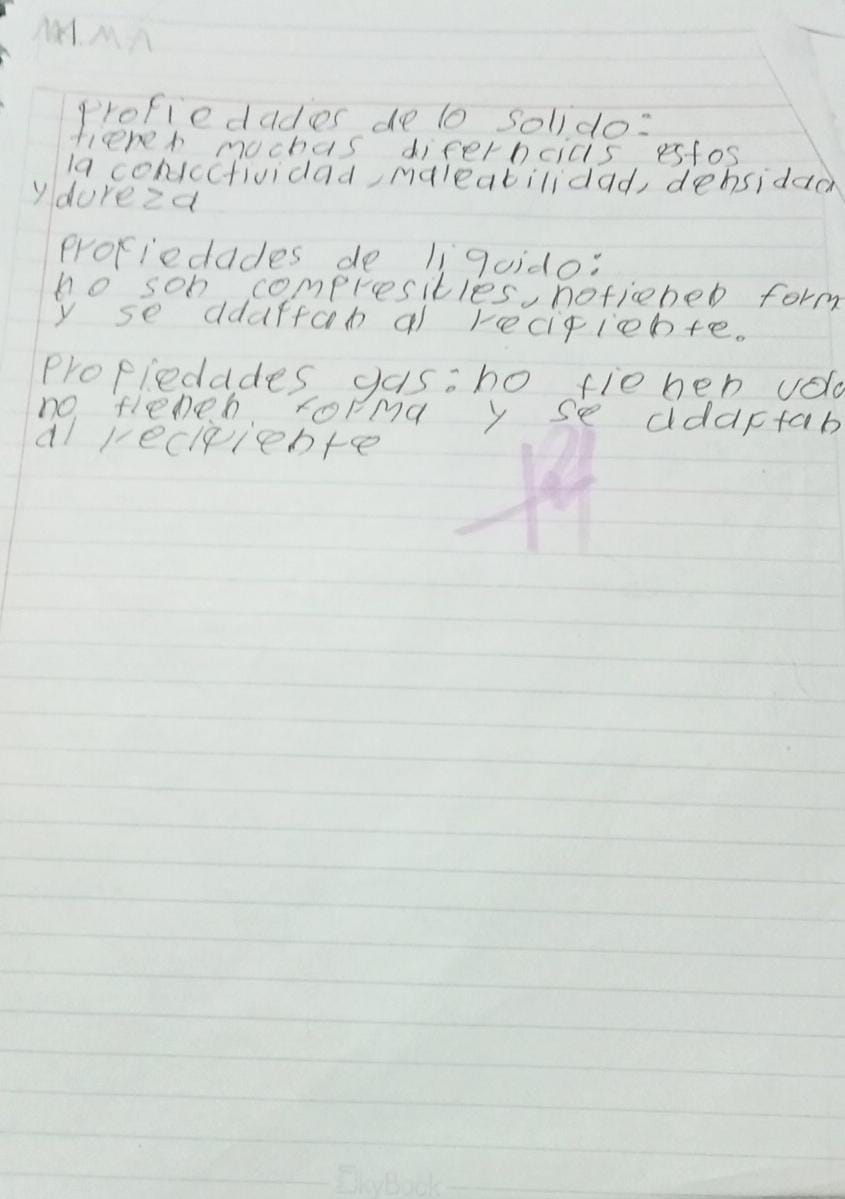 MA
propiedades de lo solido:
tienen muchas diferncias estos
la conducctividad, maleabilidad, densidad
y dureza
propiedades de liquido:
no son compresibles, notienen form
y se adaptan al recipiente.
propiedades gas: no tienen volu
no tienen forma y se adaptan
al recipiente
SkyBook